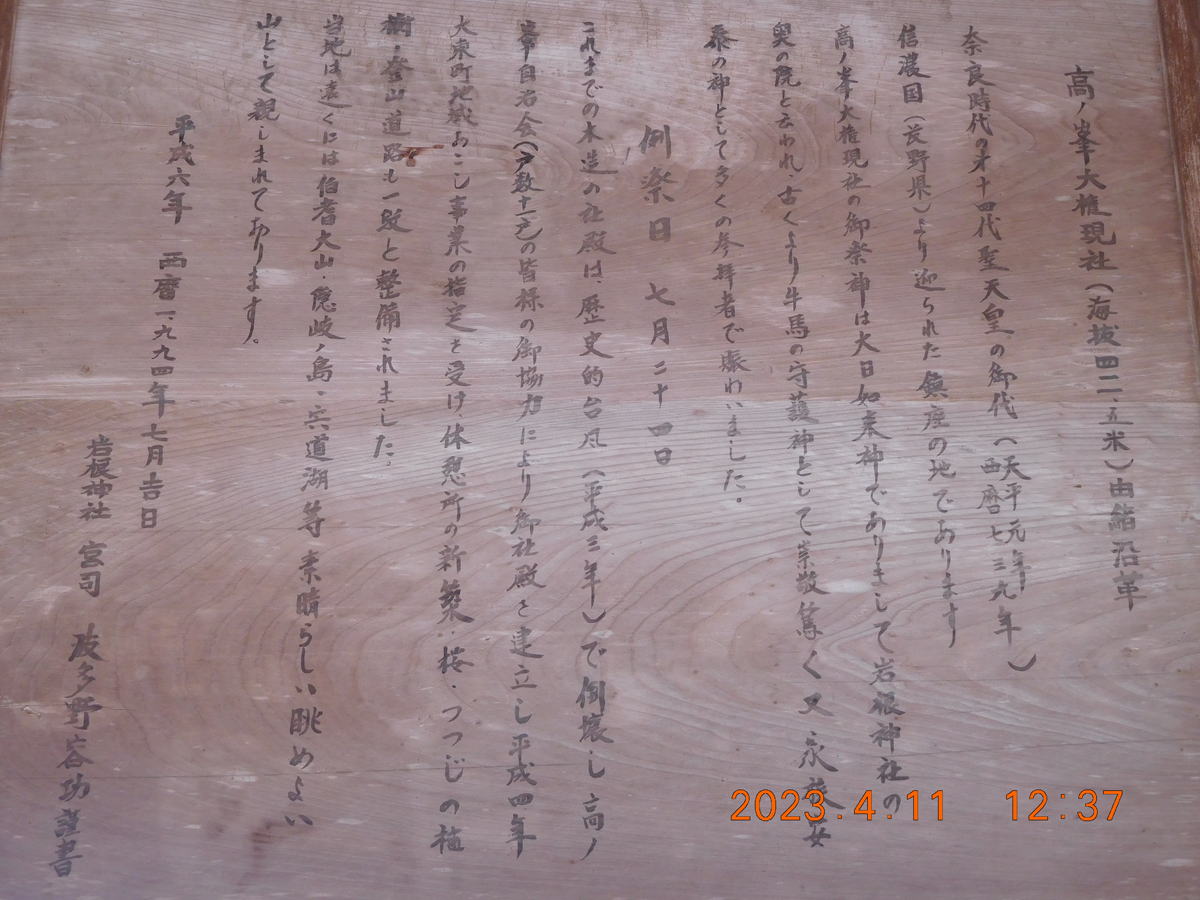 高ノ峯大権現社(海抜四二、五米)由緒沿革
奈良時代の才十四代聖天皇の御代(天平元年 西暦七三九年)
信濃国(長野県)より迎られた鎮座の地であります
高ノ峯大権現社の御祭神は大日如来神でありまして岩根神社の
奥の院と云われ、古くより牛馬の守護神として崇敬篤く又永旅安
泰の神として多くの参拝者で賑わいました。
例祭日 七月二十四日
これまでの木造の社殿は、歴史的台風(平成三年)で倒壊し高ノ
峯自治会(戸数十一戸)の皆様の御協力により御社殿を建立し平成四年
大東町地域おこし事業の指定を受け、休憩所の新築、桜・つつじの植
樹・登山道路も一段と整備されました。
当地は遠くには伯耆大山・隠岐ノ島・宍道湖等素晴らしい眺めよい
山として親しまれております。
平成六年 西暦一九九四年七月吉日
岩根神社 宮司 波多野容功謹書
2023.4.11 12:37